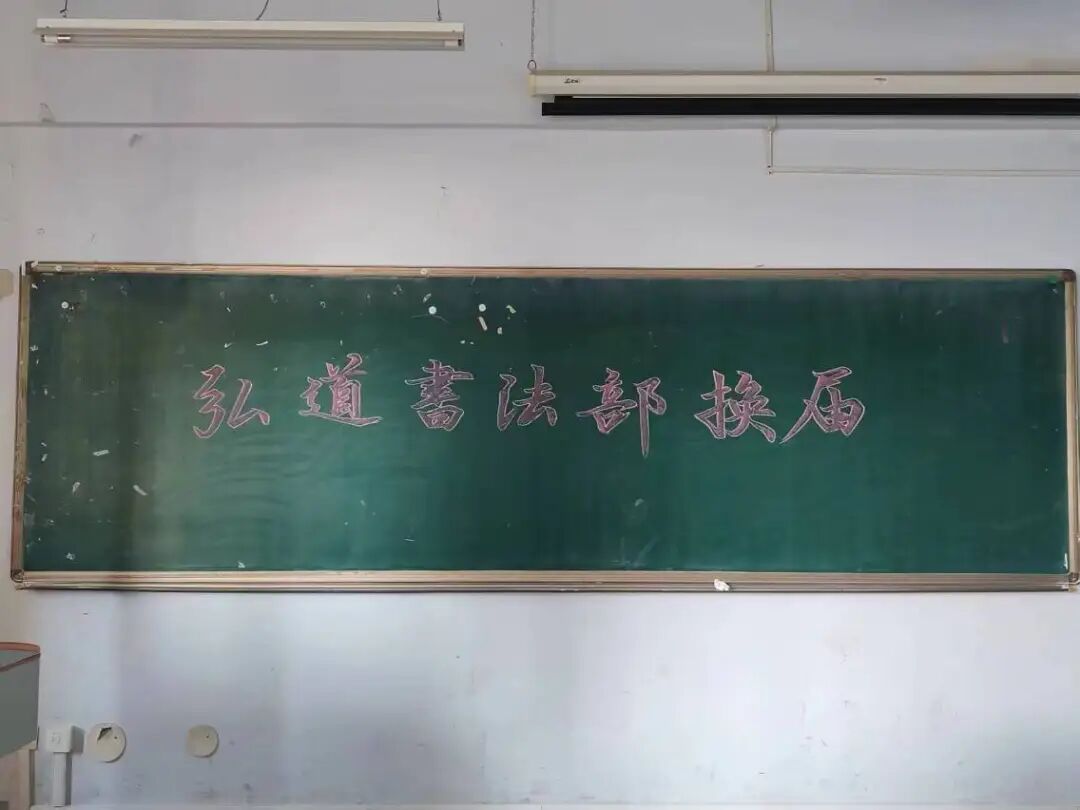 弘道書法部換届